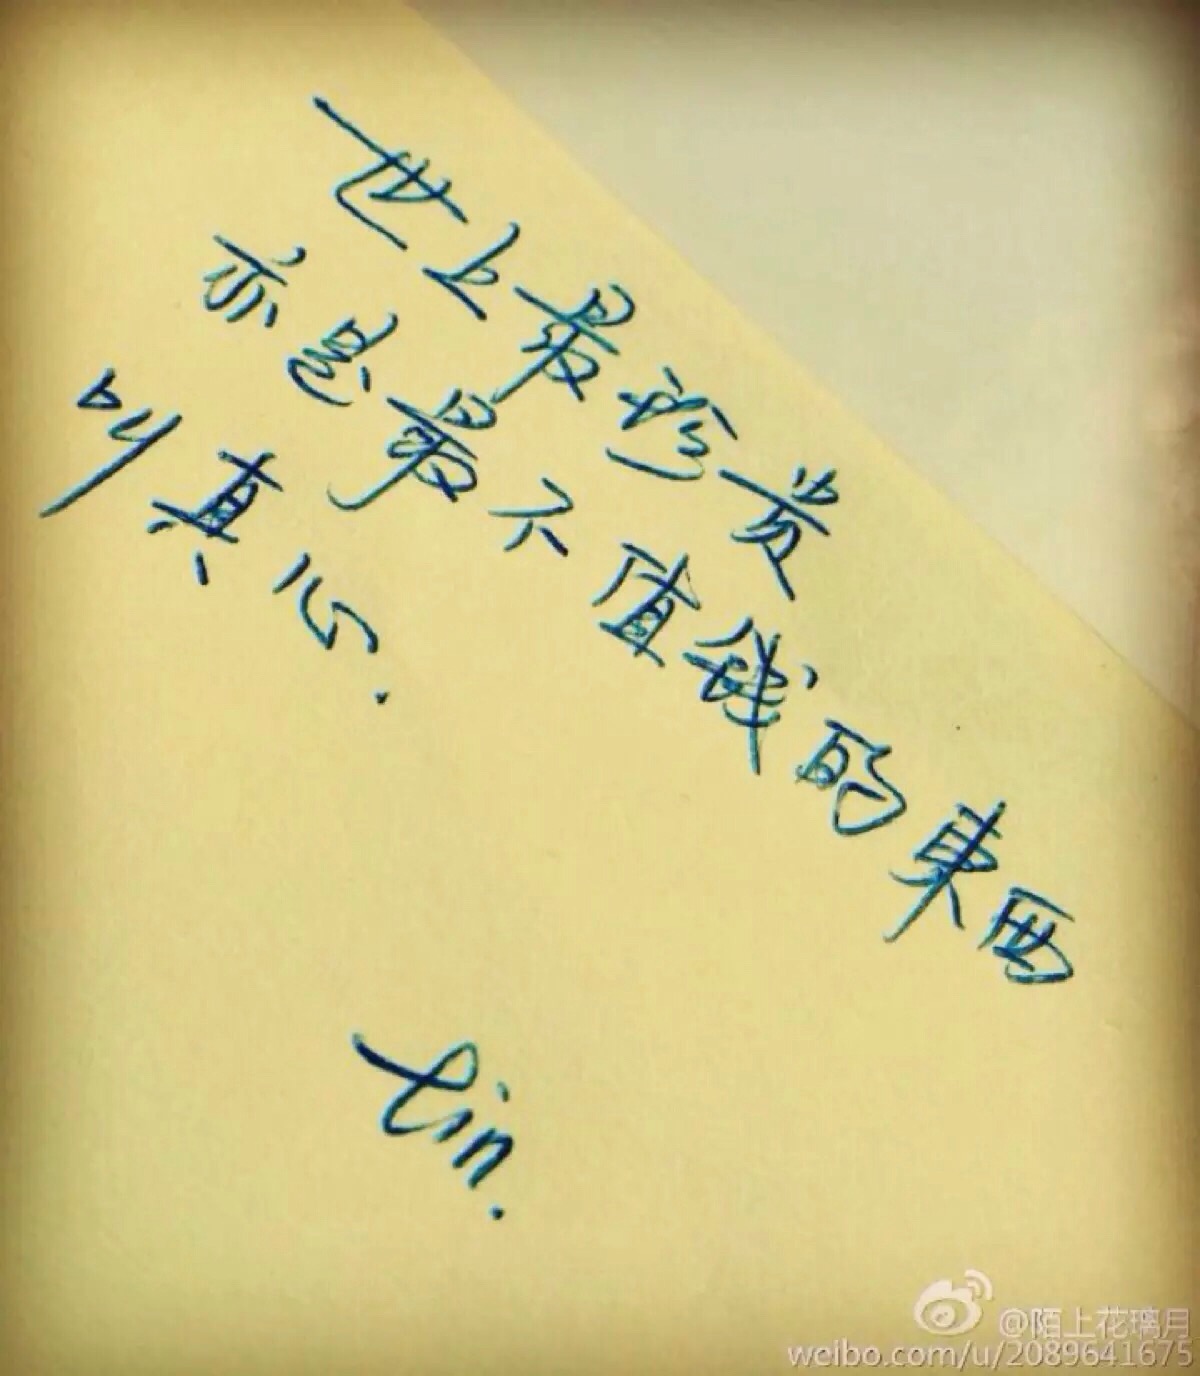 世上最珍贵
亦是最不值錢的東西
叫真心.
tin.
@陌上花璃月
weibo.com/u/2089641675